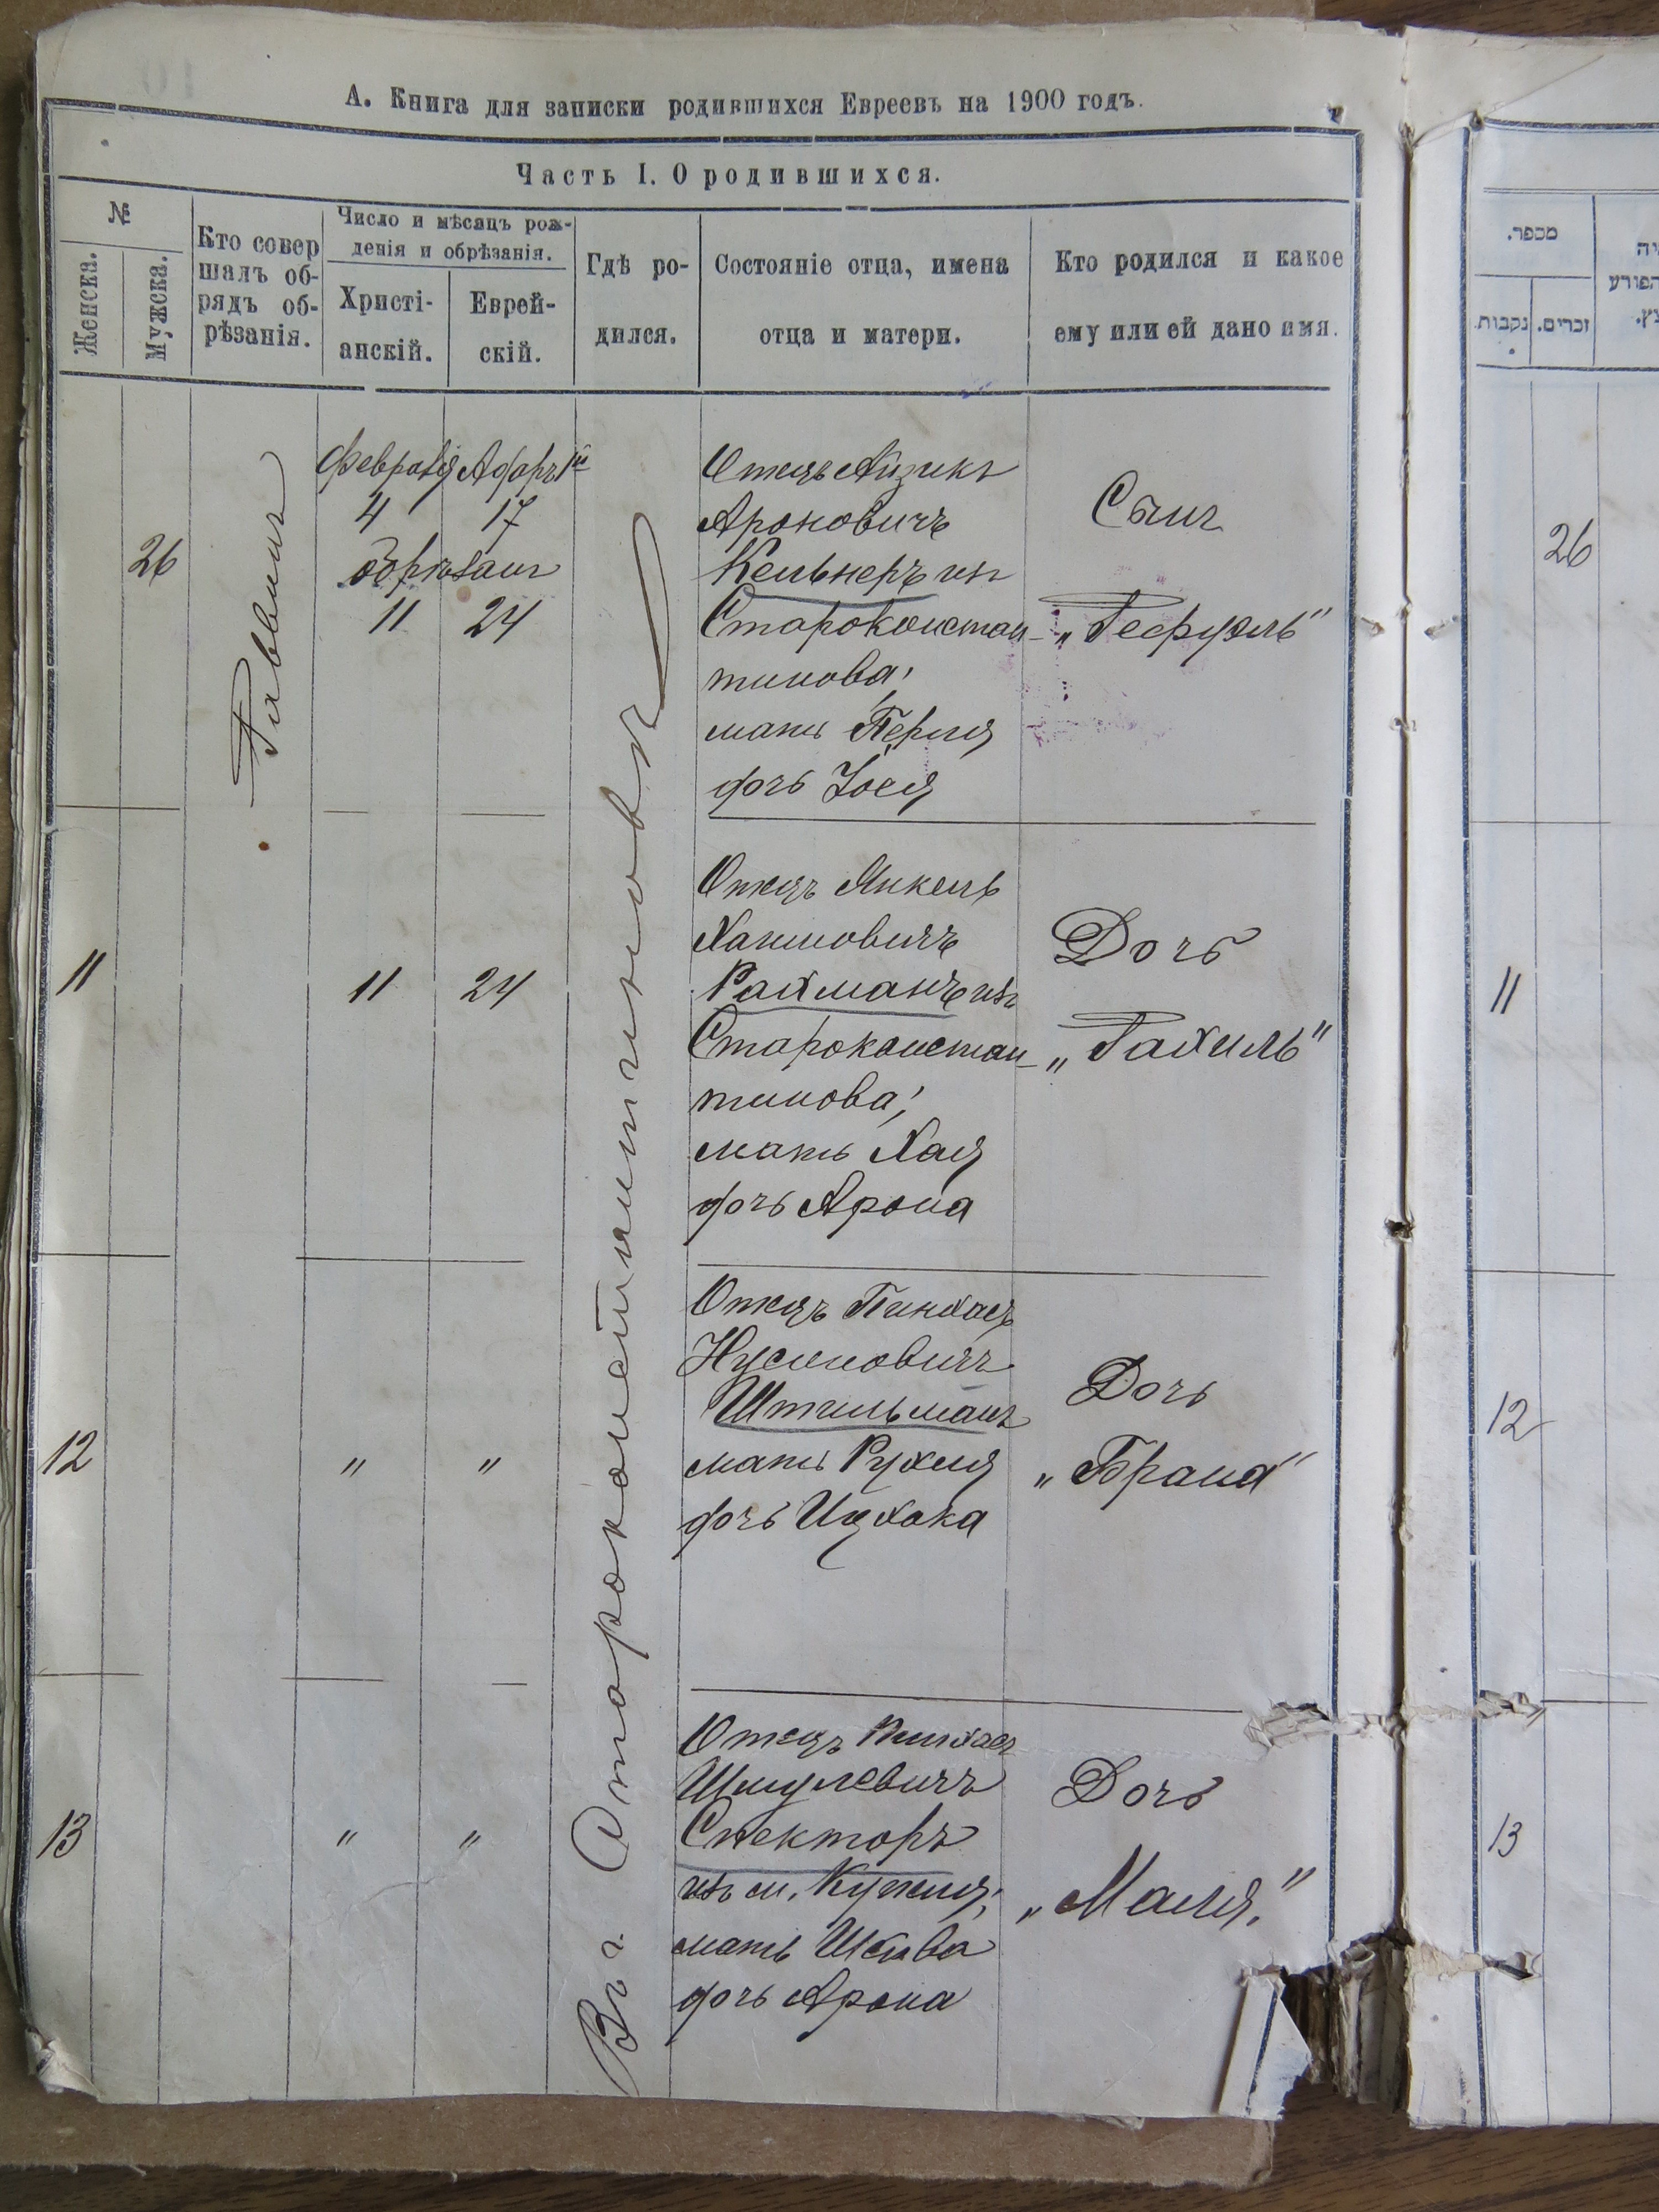 А. Книга для записки родившихся Евреевъ на 1900 годъ.
Часть I. О родившихся.
№
Женска.
Мужска.
Кто совер
шалъ об-
рядъ об-
рѣзанія.
Число и мѣсяцъ рож-
денія и обрѣзанія.
Христі-
анскій.
Еврей-
скій.
Гдѣ ро-
дился.
Состояніе отца, имена
отца и матери.
Кто родился и какое
ему или ей дано имя.
26
Раввинъ
Февраля
4
обрѣзанъ
11
Адаръ 1й
17
24
Въ г. Староконстантиновѣ
Отецъ Айзикъ
Ароновичъ
Кельнеръ изъ
Староконстан-
тинова;
мать Перля
дочь Iося
Сынъ
11
11
24
Отецъ Янкель
Хаимовичъ
Рахманъ изъ
Староконстан-
тинова;
мать Хая
дочь Арона
Дочь
„Рахиль“
12
„
„
Отецъ Пинхасъ
Нусиновичъ
Штильманъ
мать Рухля
дочь Ицхока
Дочь
„Брана“
13
„
„
Отецъ Пинхасъ
Шмулевичъ
Спекторъ
изъ м. Купеля;
мать Шева
дочь Арона
Дочь
„Маля.“
מספר.
נקבות.
זכרים.
26
11
12
13